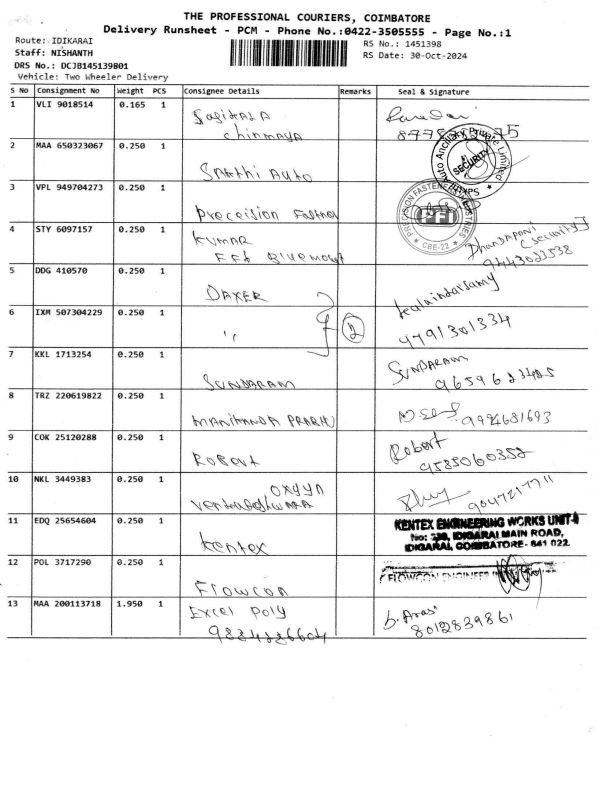 THE PROFESSIONAL COURIERS, COIMBATORE
Delivery Runsheet - PCM - Phone No.:0422-3505555 - Page No.:1
Route: IDIKARAI
RS No.: 1451398
Staff: NISHANTH
RS Date: 30-Oct-2024
DRS No.: DCJB145139801
Vehicle: Two Wheeler Delivery
S No Consignment No Weight PCS Consignee Details Remarks Seal & Signature
1 VLI 9018514 0.165 1
chinmaya
2 MAA 650323067 0.250 1
Sakthi Auto
Sakthi Auto Ancillary Private Limited
SECURITY
3 VPL 949704273 0.250 1
Precision
PRECISION FASTENERS INDUSTRIES
PFI
CBE-22
4 STY 6097157 0.250 1 KUMAR
DHANDAPANI
(Security)
9443023538
5 DDG 410570 0.250 1
DAXER
6 IXM 507304229 0.250 1
"
2
4791301334
7 KKL 1713254 0.250 1
SUNDARAM
SUNDARAM
8 TRZ 220619822 0.250 1
MANIKANDA PRABHU
9 COK 25120288 0.250 1
Robert
Robert
9585060352
10 NKL 3449383 0.250 1
oxygn
11 EDQ 25654604 0.250 1
Kentex
KENTEX ENGINEERING WORKS UNIT-I
No: 339, IDIGARAI MAIN ROAD,
IDIGARAI, COIMBATORE - 641 022.
12 POL 3717290 0.250 1
Flowcon
FLOWCON ENGINEER
13 MAA 200113718 1.950 1 Excel Poly
b. Arasi
8012839861